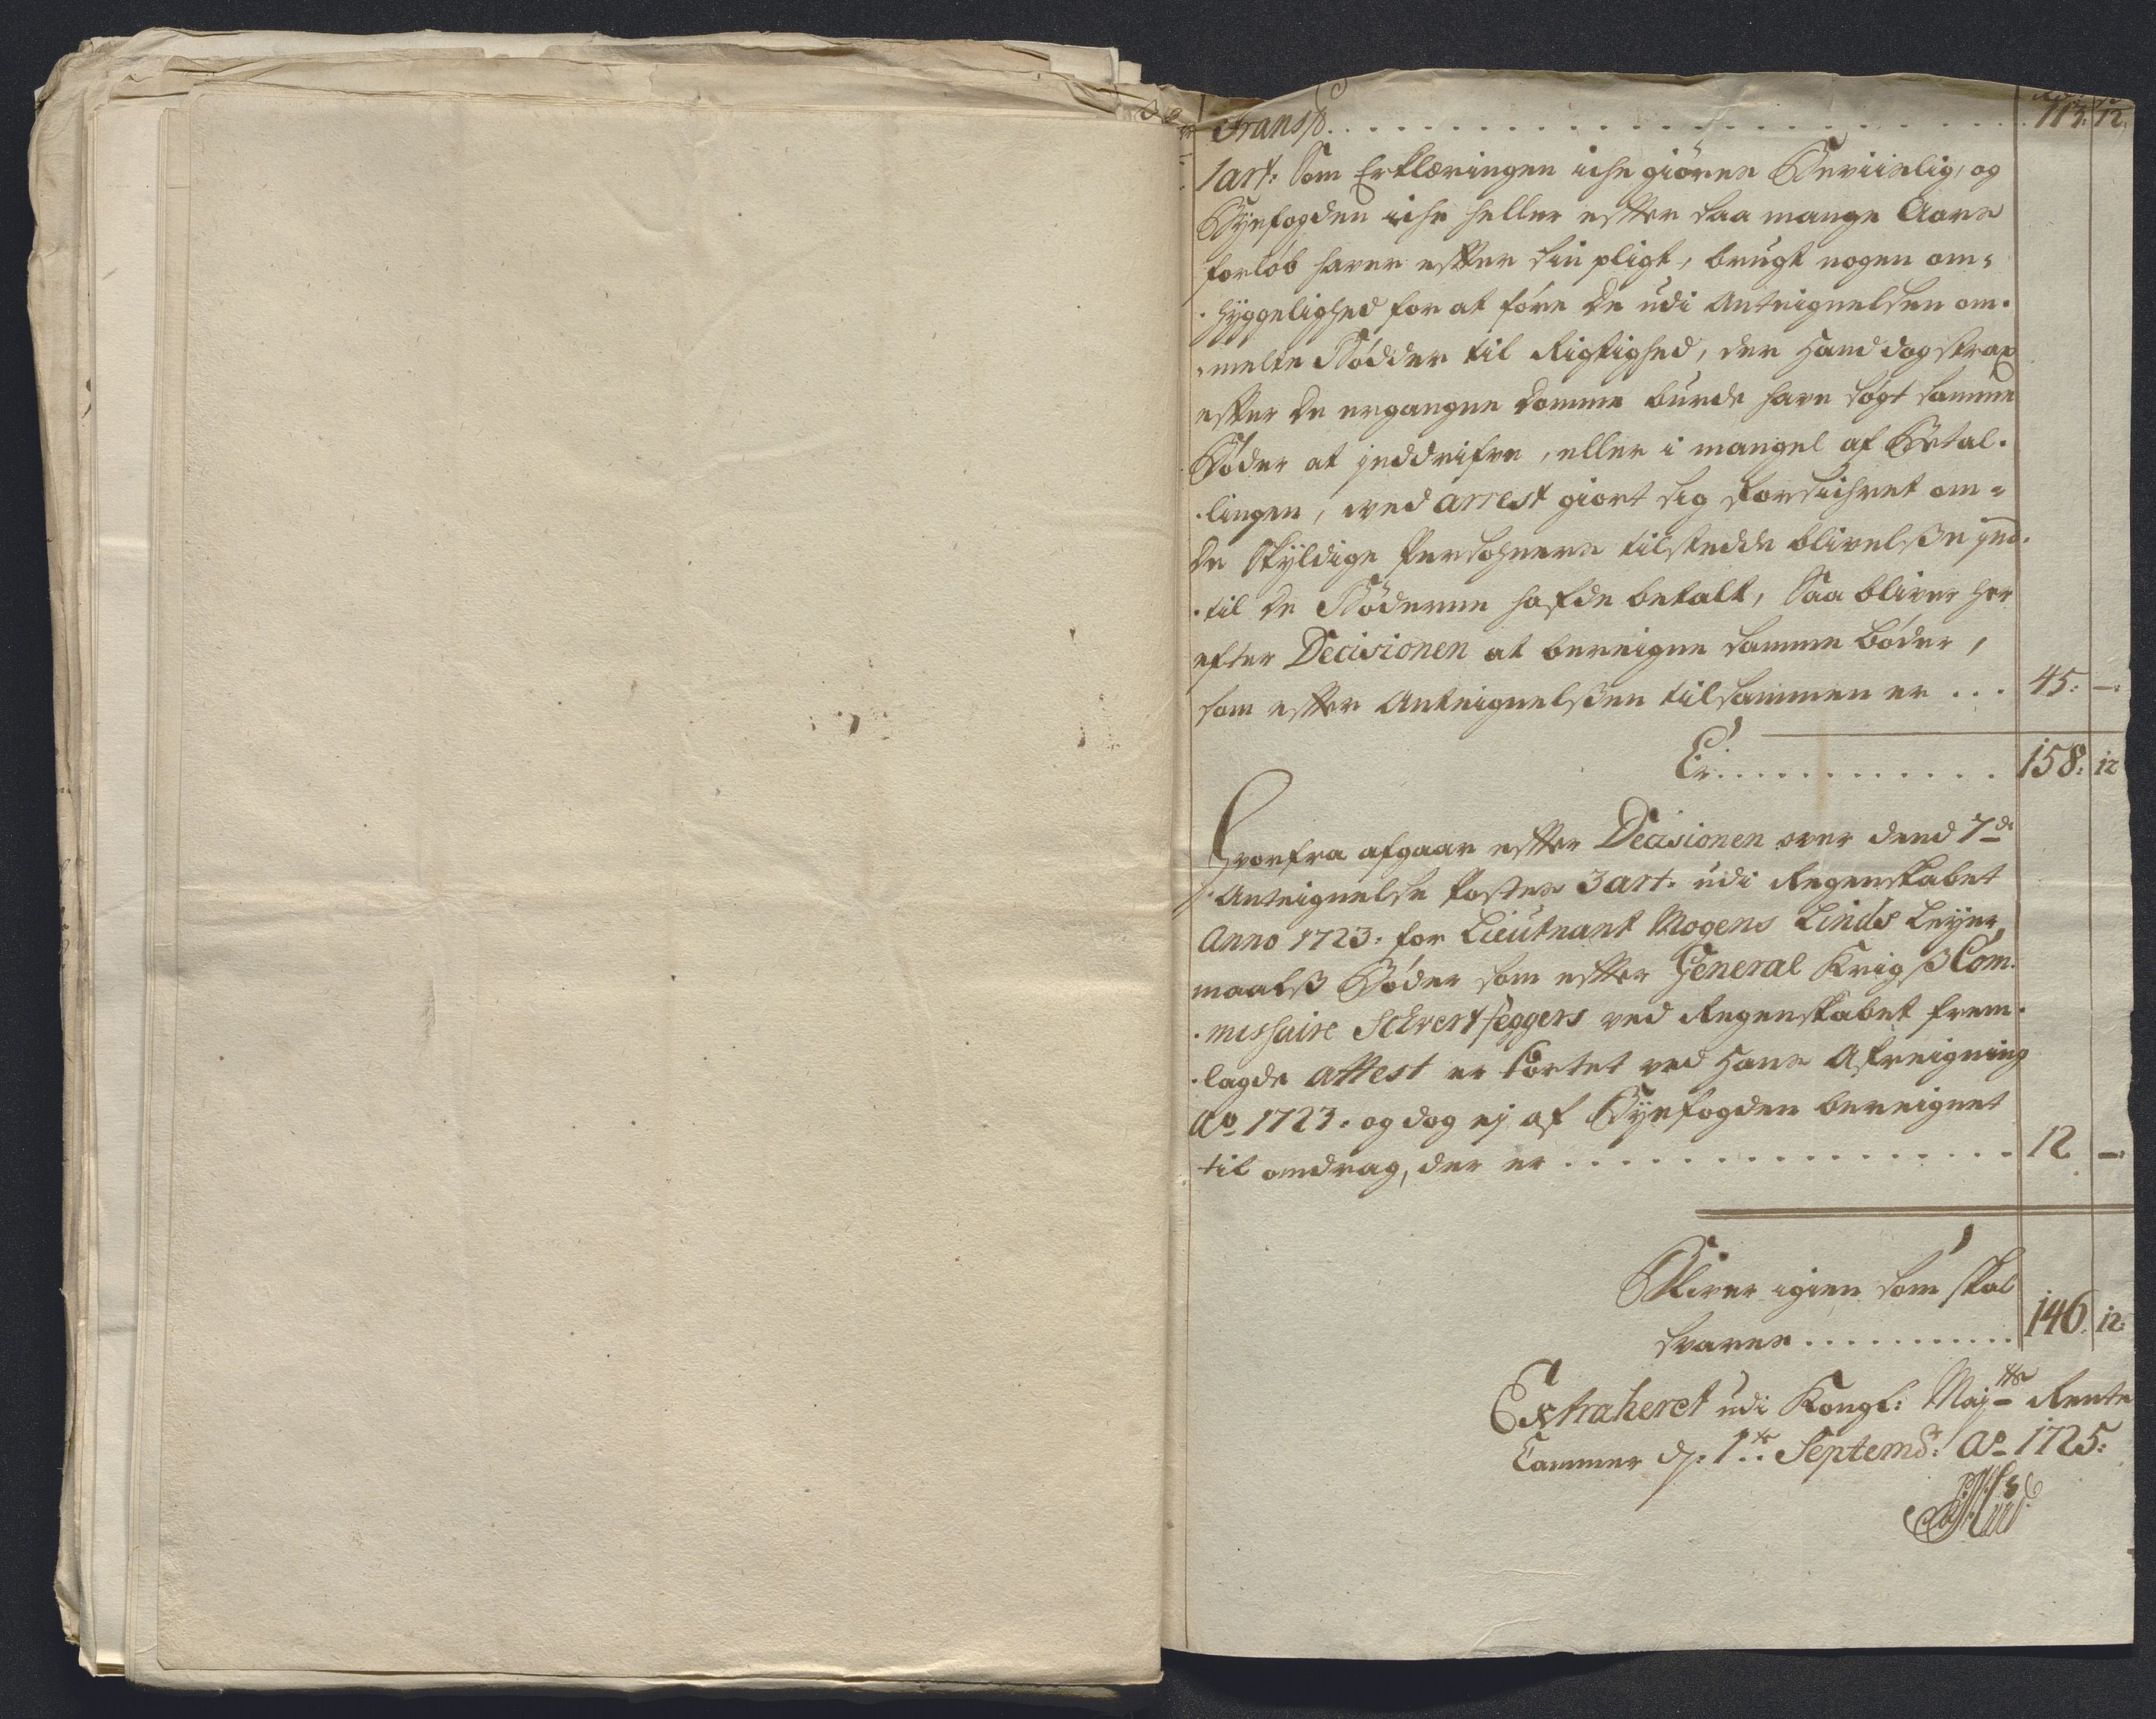 Rdr: s
Transp. . . . . . . . . . . . . . . . . . . . . . . 113: 12:
1 art: Som Erklæringen iche giøres Beviislig, og
Byefogden iche heller efter saa mange Aars
forløb haver efter sin pligt, brugt nogen om-
hyggelighed for at føre de udi Anteignelsen om-
melte Bødder til Rigtighed, der hand dog strax
efter de ergangne Domme burde have søgt samme
Bøder at inddrifve, eller i mangel af Betal-
lingen, ved arrest giort sig forsichret om-
de Skyldige Persohners tilstedde blivelsße ind-
til de Bøderne hafde betalt, Saa bliver her
efter Decisionen at bereigne samme bøder,
som efter Anteignelsßen tilsammen er . . . 45: —:
Er. . . . . . . . . . . . 158: 12
Hvorfra afgaar efter Decisionen over dend 7de
Anteignelse Postes 3 art: udi Regenskabet
Anno 1723: for Lieutnant Mogens Linds Leyer
maalß Bøder som efter General Krigß Com-
missaire Schwertfeggers ved Regenskabet frem-
lagde attest er kortet ved Hans Afreigning
Ao 1723: og dog ej af Byefogden bereignet
til omdrag, der er . . . . . . . . . . . . . . . 12 —:
Bliver igien som skal
svares . . . . . . . . . . . 146: 12:
Extraheret udi Kongl: Maj:tts Rente
Cammer d: 1te Septembr: Ao 1725: